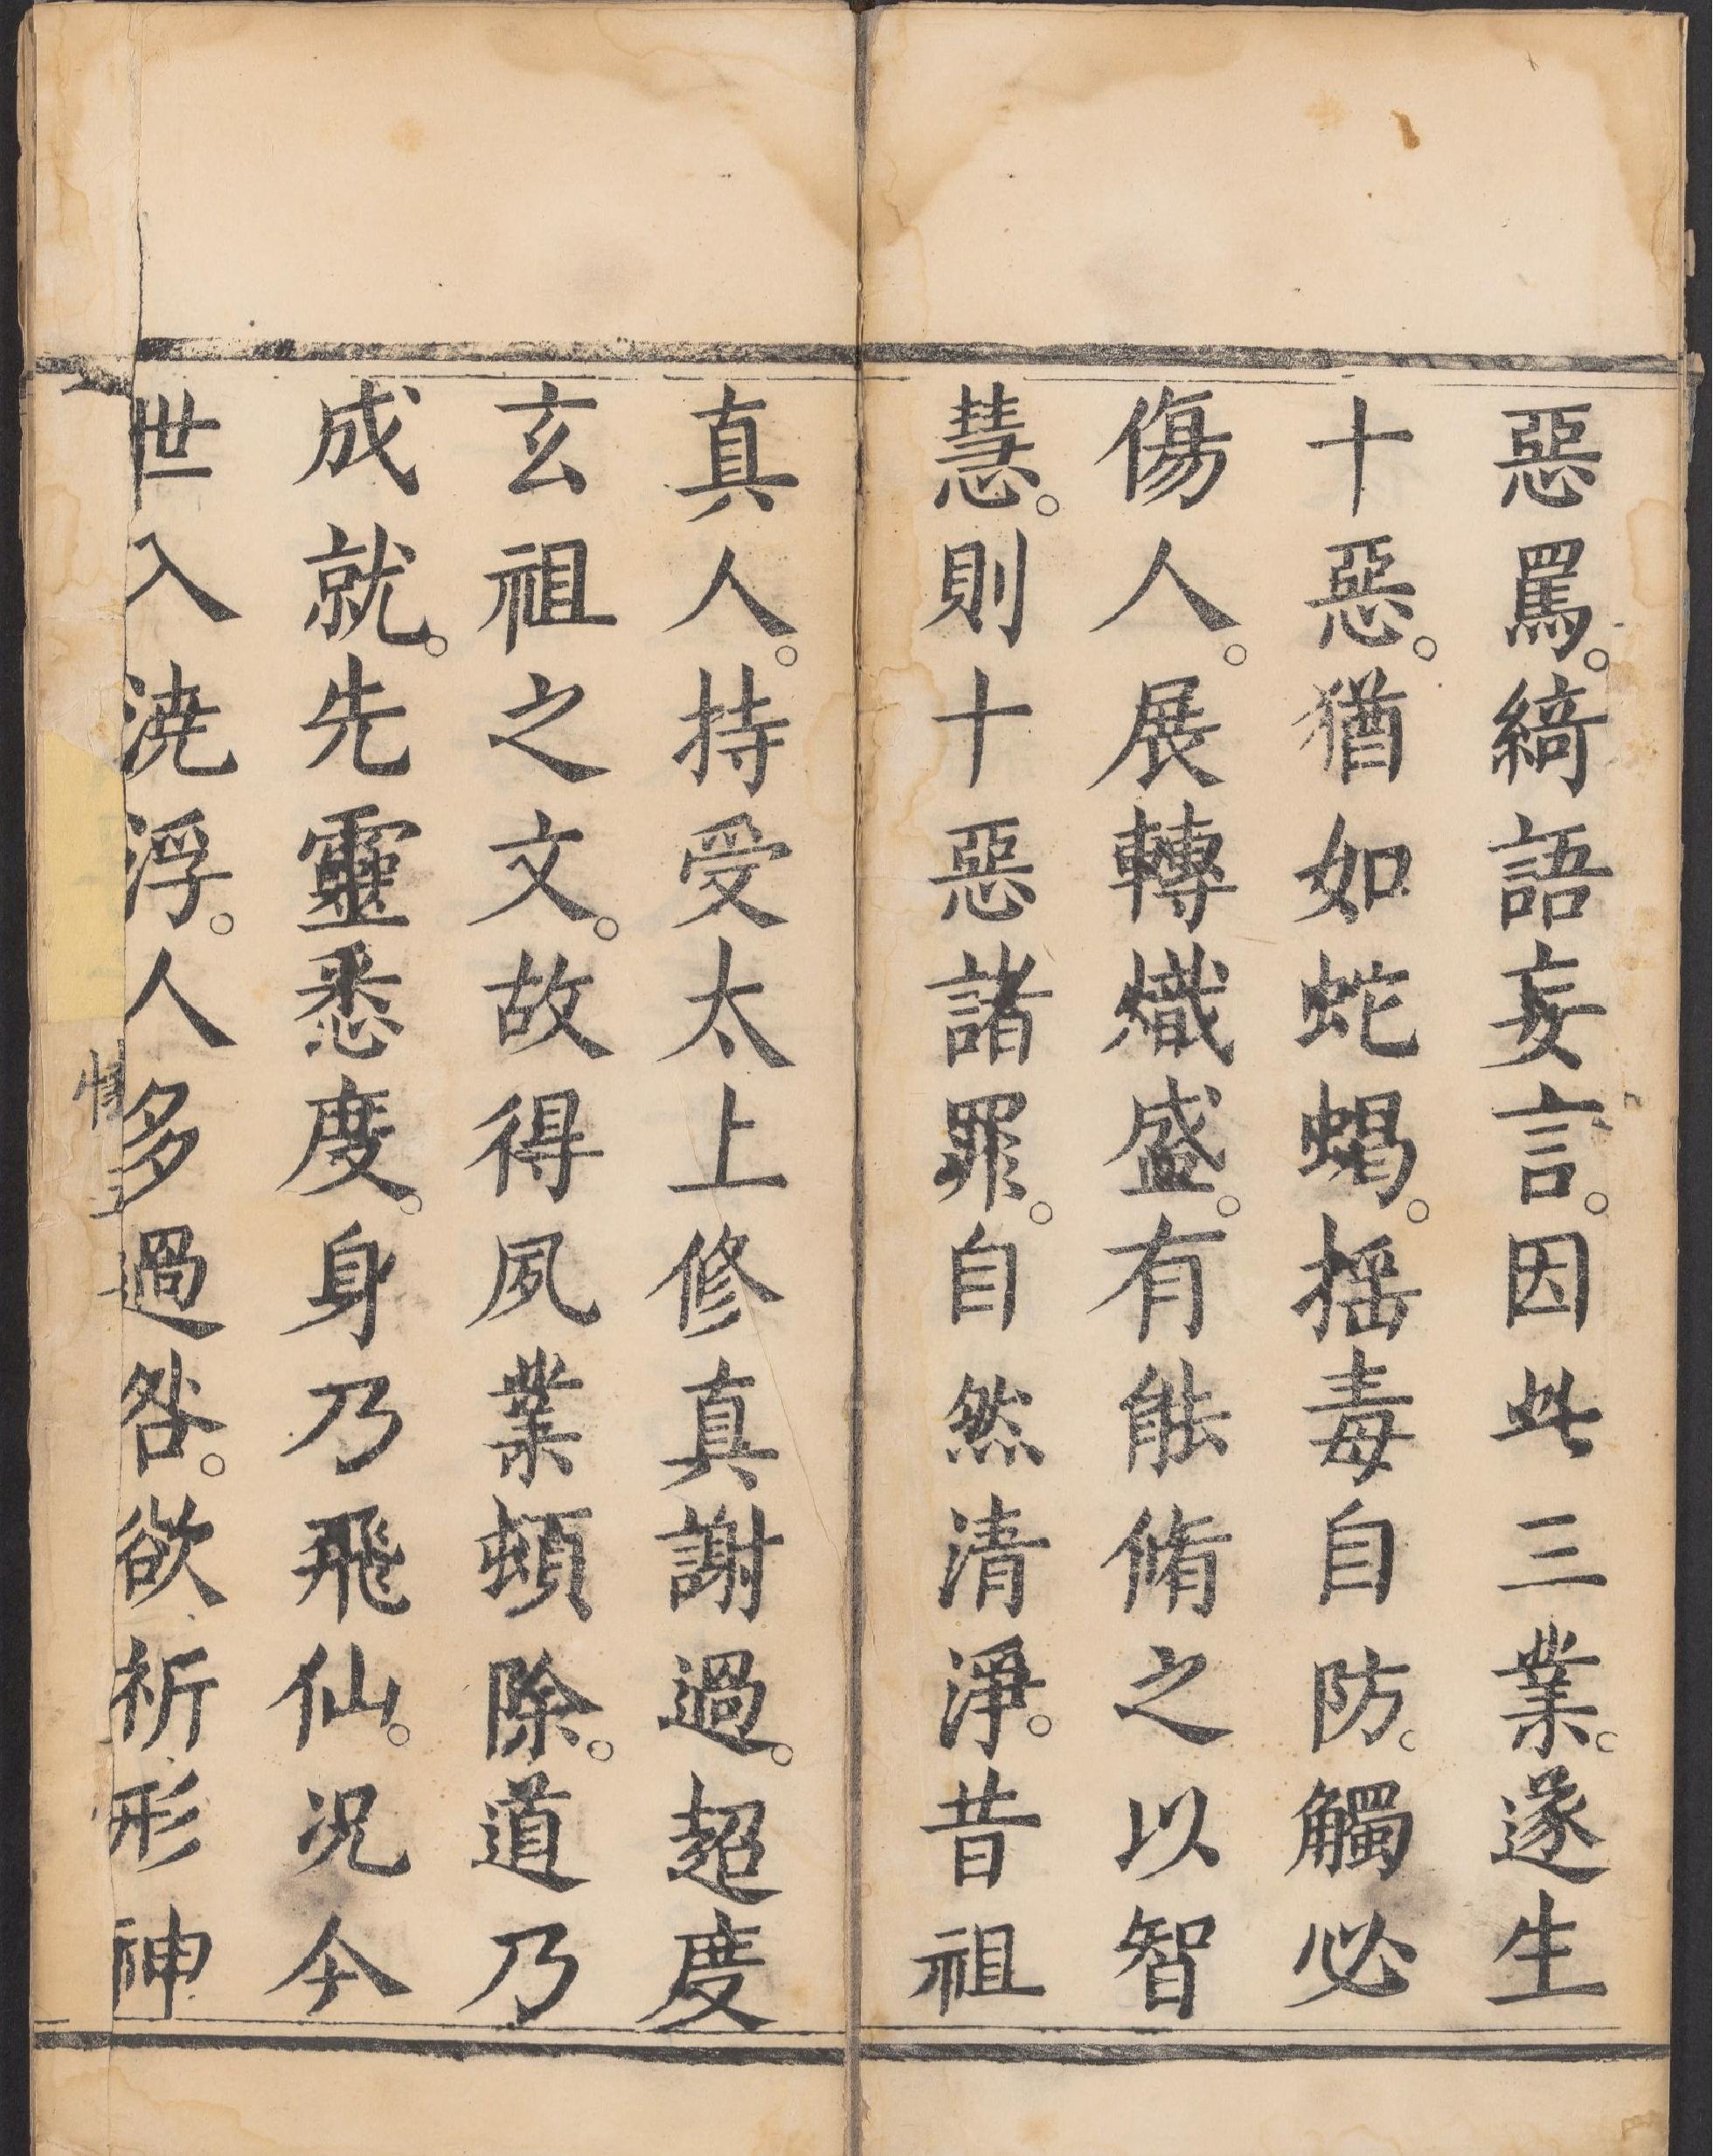 惡罵。綺語妄言。因此三業。遂生
十惡。猶如蛇蝎。揺毒自防。觸必
傷人。展轉熾盛。有能脩之以智
慧。則十惡諸罪。自然清淨。昔祖
真人。持受太上修真謝過。超度
玄祖之文。故得夙業頓除。道乃
成就。先靈悉度。身乃飛仙。况今
世入澆浮。人多過咎。欲祈形神